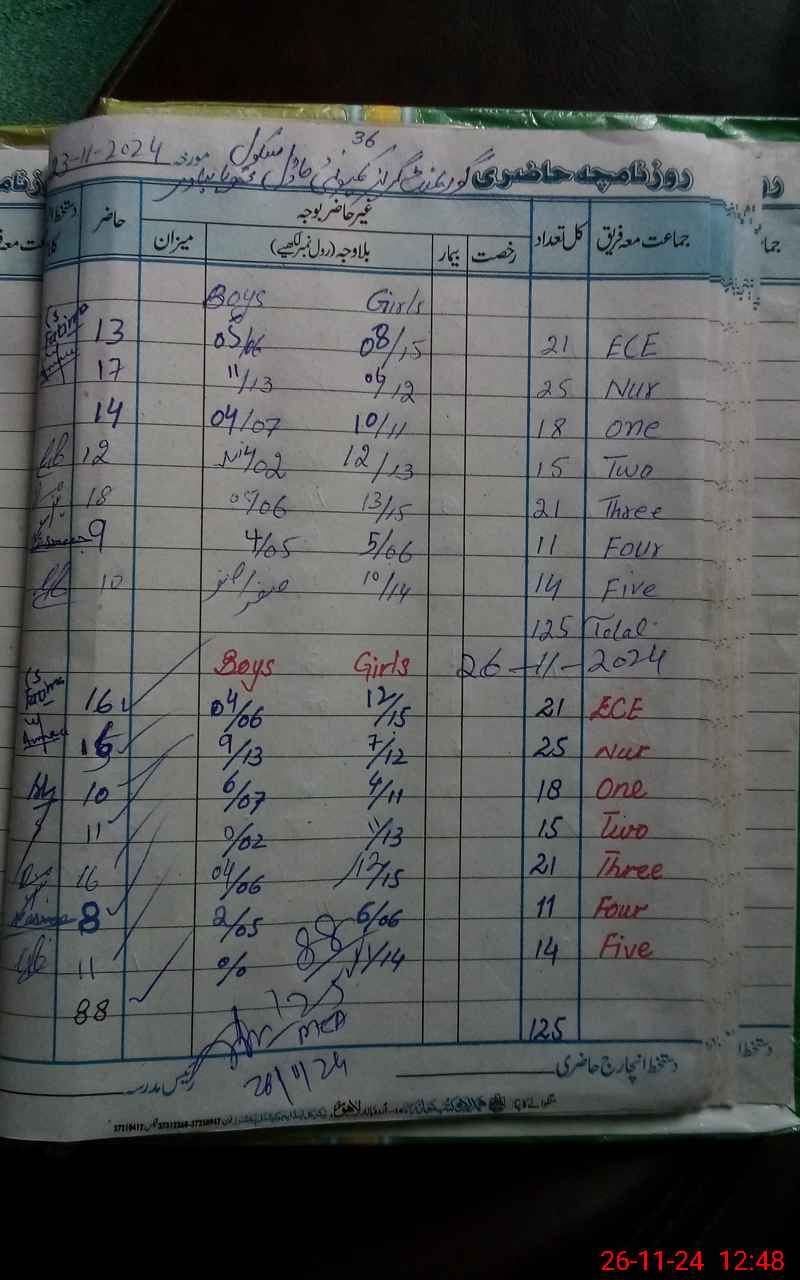 36
روزنامچہ حاضری گورنمنٹ گرلز کمیونٹی ماڈل سکول مورخہ 23-11-2024
جماعت معہ فریق کل تعداد غیر حاضر بوجہ حاضر
رخصت بیمار بلاوجہ (رول نمبر لکھیے) میزان
Boys Girls
13 05/06 08/15 21 ECE
17 11/13 /12 25 Nur
14 04/07 10/11 18 One
12 Nil/02 12/13 15 Two
18 05/06 13/15 21 Three
9 4/05 5/06 11 Four
10 10/14 14 Five
125 Total
Boys Girls 26-11-2024
Fatima 16 04/06 12/15 21 ECE
16 9/13 7/12 25 Nur
10 6/07 4/11 18 One
11 0/02 11/13 15 Two
16 04/06 12/15 21 Three
8 2/05 6/06 11 Four
11 0/0 11/14 14 Five
88 88/125
MEA 125
26/11/24
دستخط انچارج حاضری رئیس مدرسہ
26-11-24 12:48